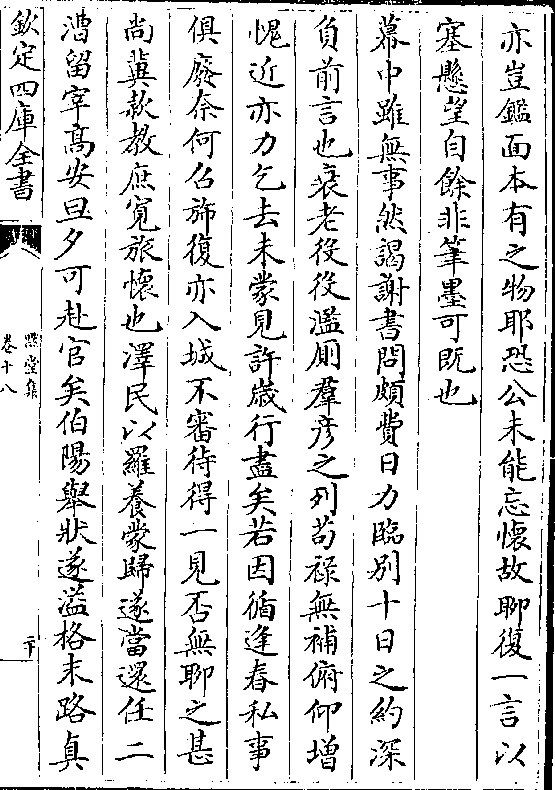 亦豈鑑面本有之物耶恐公未能忘懷故聊復一言以
塞懸望自餘非筆墨可既也
幕中雖無事然謁謝書問頗費日力臨別十日之約深
負前言也衰老役役濫厠羣彦之列茍禄無補俯仰增
愧近亦力乞去未蒙見許歲行盡矣若因循逢春私事
俱廢奈何召斾復亦入城不審待得一見否無聊之甚
尚冀款教庶寛旅懷也澤民以羅養蒙歸遂當還任二
漕留宰髙安旦夕可赴官矣伯陽舉狀遂溢格末路真
欽定四庫全書
黙堂集
卷十八
二十